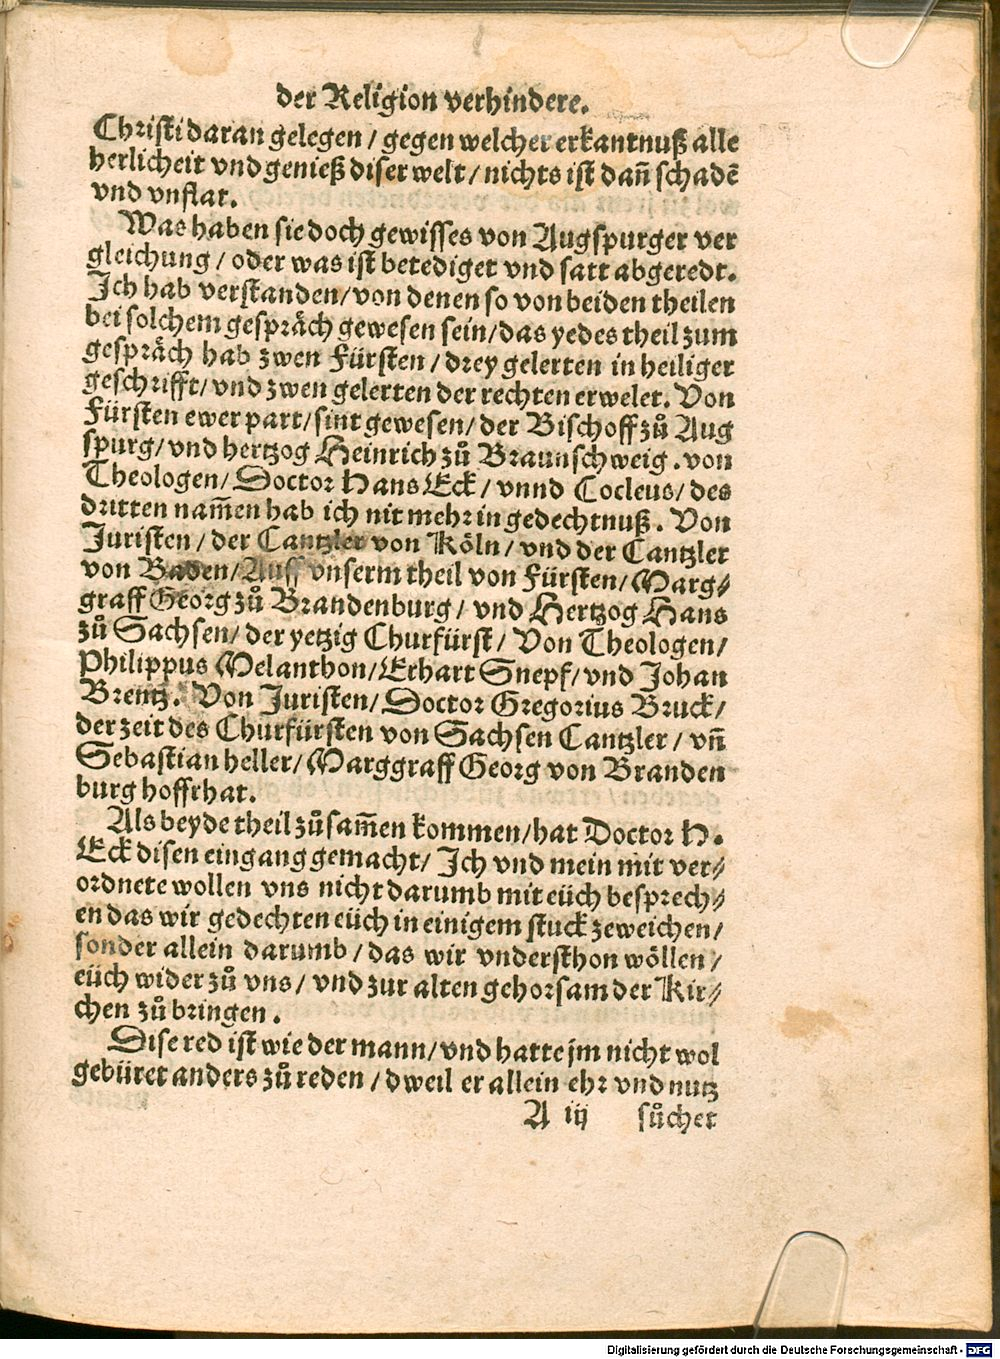 der Religion verhindere.
Christi daran gelegen / gegen welcher erkantnuß alle
herlicheit vnd genieß diser welt / nichts ist dañ schadē
vnd vnflat.
Was haben sie doch gewisses von Augspurger ver
gleichung / oder was ist betediget vnd satt abgeredt.
Ich hab verstanden / von denen so von beiden theilen
bei solchem gespräch gewesen sein / das yedes theil zum
gespräch hab zwen Fürsten / drey gelerten in heiliger
geschrifft / vnd zwen gelerten der rechten erwelet. Von
Fürsten ewer part / sint gewesen / der Bischoff zů Aug
spurg / vnd hertzog Heinrich zů Braunschweig. von
Theologen / Doctor Hans Eck / vnnd Cocleus / des
dritten nam̄en hab ich nit mehr in gedechtnuß. Von
Juristen / der Cantzler von Köln / vnd der Cantzler
von Baden / Auff vnserm theil von Fürsten / Marg⸗
graff Georg zů Brandenburg / vnd Hertzog Hans
zů Sachsen / der yetzig Churfürst / Von Theologen /
Philippus Melanthon / Erhart Snepf / vnd Johan
Brentz. Von Juristen / Doctor Gregorius Bruck /
der zeit des Churfürsten von Sachsen Cantzler / vñ
Sebastian heller / Marggraff Georg von Branden
burg hoffrhat.
Als beyde theil zůsam̄en kommen / hat Doctor H.
Eck disen eingang gemacht / Ich vnd mein mit ver⸗
ordnete wollen vns nicht darumb mit eüch besprech⸗
en das wir gedechten eüch in einigem stuck zeweichen /
sonder allein darumb / das wir vndersthon wöllen /
eüch wider zů vns / vnd zur alten gehorsam der Kir⸗
chen zů bringen.
Dise red ist wie der mann / vnd hatte jm nicht wol
gebüret anders zů reden / dweil er allein ehr vnd nutz
A iij sůchet
Digitalisierung gefördert durch die Deutsche Forschungsgemeinschaft - DFG